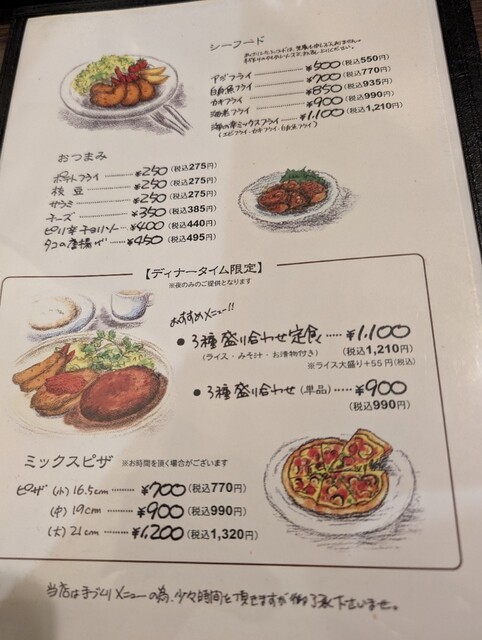 シーフード
アジフライ ¥500 (税込550円)
白身魚フライ ¥700 (税込770円)
カキフライ ¥850 (税込935円)
海老フライ ¥900 (税込990円)
海の幸ミックスフライ ¥1,100 (税込1,210円)
(エビフライ・カキフライ・白身魚フライ)
おつまみ
ポテトフライ ¥250 (税込275円)
枝豆 ¥250 (税込275円)
サラミ ¥250 (税込275円)
チーズ ¥350 (税込385円)
ピリ辛チョリソー ¥400 (税込440円)
タコの唐揚げ ¥450 (税込495円)
【ディナータイム限定】
※夜のみのご提供となります
おすすめメニュー!!
●3種盛り合わせ定食 ¥1,100
(ライス・みそ汁・お漬物付き) (税込1,210円)
※ライス大盛り+55円(税込)
●3種盛り合わせ(単品) ¥900
(税込990円)
ミックスピザ ※お時間を頂く場合がございます
ピザ (小) 16.5cm ¥700 (税込770円)
(中) 19cm ¥900 (税込990円)
(大) 21cm ¥1,200 (税込1,320円)
当店は手づくりメニューの為、少々時間を頂きますが御了承下さいませ。